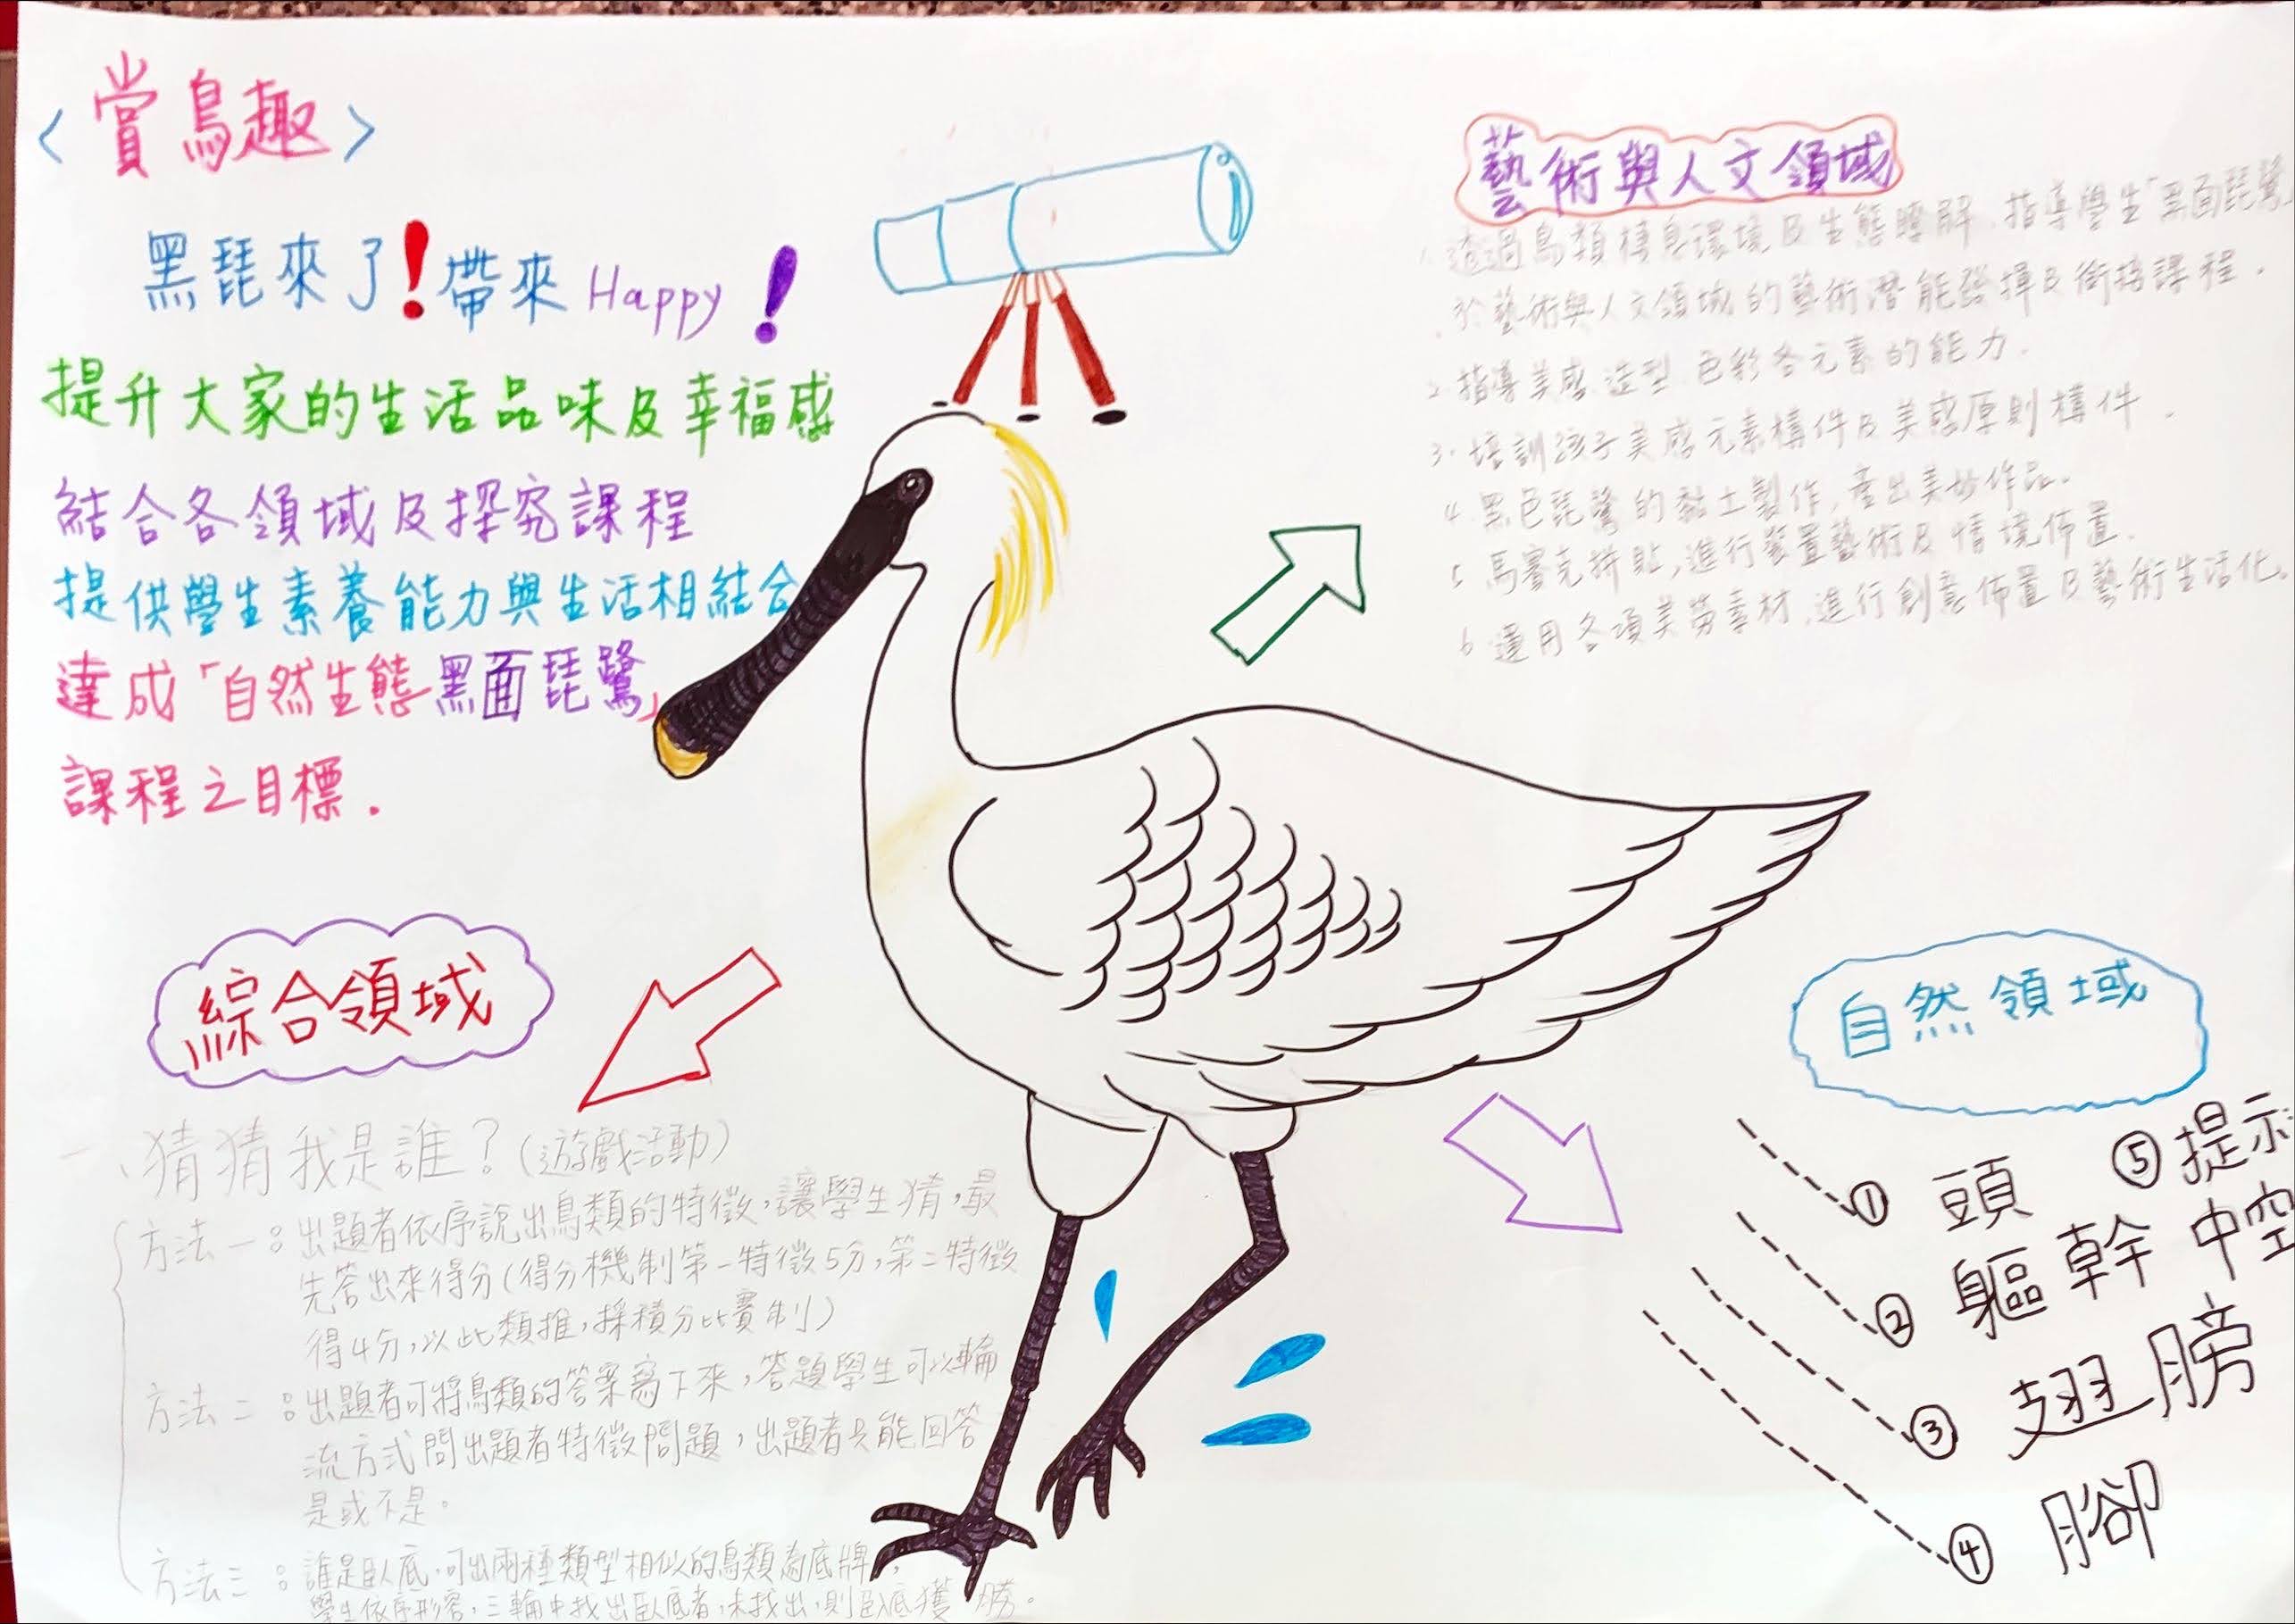 〈賞鳥趣〉
黑琵來了!帶來Happy!
提升大家的生活品味及幸福感
結合各領域及探究課程
提供學生素養能力與生活相結合
達成「自然生態黑面琵鷺」
課程之目標.
藝術與人文領域
1.透過鳥類棲息環境及生態瞭解.指導學生「黑面琵鷺」
於藝術與人文領域的藝術潛能發揮及銜接課程.
2.指導美感.造型.色彩各元素的能力.
3.培訓孩子美感元素構件及美感原則構件.
4.黑色琵鷺的黏土製作,產出美妙作品.
5.馬賽克拼貼,進行裝置藝術及情境佈置.
6.運用各項美勞素材,進行創意佈置及藝術生活化.
綜合領域
一、猜猜我是誰?(遊戲活動)
方法一:出題者依序說出鳥類的特徵,讓學生猜,最
先答出來得分(得分機制第一特徵5分,第二特徵
得4分,以此類推,採積分比賽制)
方法二:出題者可將鳥類的答案寫下來,答題學生可以輪
流方式問出題者特徵問題,出題者只能回答
是或不是。
方法三:誰是臥底.可出兩種類型相似的鳥類為底牌,
學生依序形容,三輪中找出臥底者,未找出,則臥底獲勝。
自然領域
①頭 ⑤提示
②軀幹 中空
③翅膀
④腳